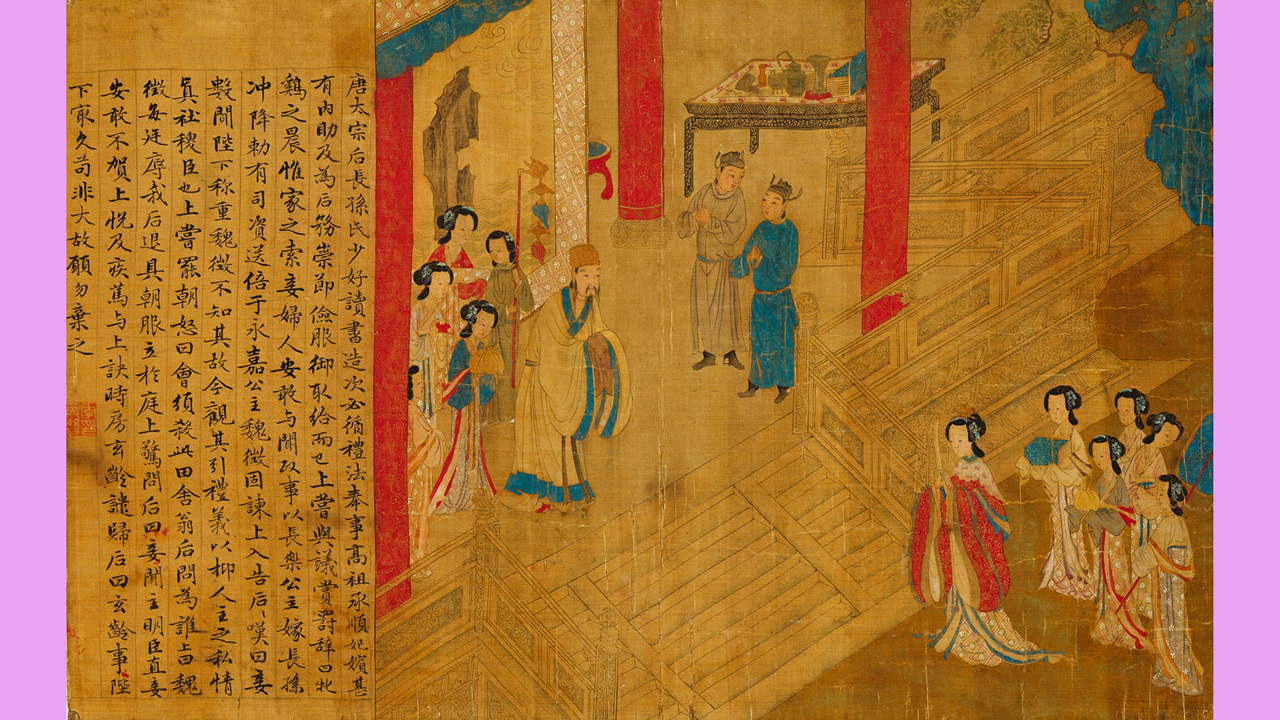 唐太宗后長孫氏少好讀書造次必循禮法奉事高祖承順妃嬪甚
有內助及為后務崇節儉服御取給而已上嘗與議賞罰辭曰牝
鷄之晨惟家之索妾婦人安敢与聞政事以長樂公主嫁長孫
冲降勅有司資送倍于永嘉公主魏徵固諫上入告后〻嘆曰妾
數聞陛下称重魏徵不知其故今觀其引禮義以抑人主之私情
真社稷臣也上嘗罷朝怒曰會須殺此田舍翁后問為誰上曰魏
徵每廷辱我后退具朝服立於庭上驚問后曰妾聞主明臣直妾
安敢不賀上悅及疾篤与上訣時房玄齡譴歸后曰玄齡事陛
下㝡久苟非大故願勿棄之